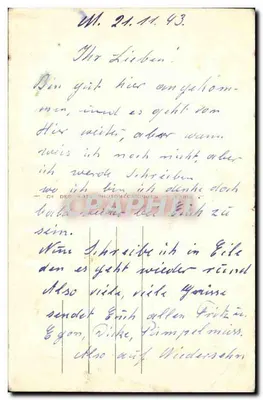 M. 21.11.43.
Ihr Lieben!
Bin gut hier angekom-
men, und es geht von
Hier weiter, aber wann
weis ich noch nicht aber
ich werde Schreiben
wo ich bin ich denke doch
bald bei Euch zu
sein.
Nun Schreibe ich in Eile
den es geht wieder rund
Also viele, viele Grüsse
sendet Euch allen Fritz u.
Egon, Dicke, Pümpelmiss.
Also auf Wiedersehn